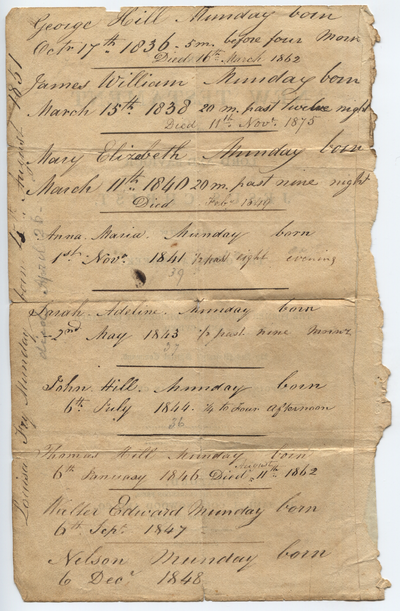 George Hill Munday born
Octr 17th 1836. 5m. before four Morn
Died 16th March 1862
James William Munday born
March 15th 1838 20 m. past twelve night
Died 11th Novr. 1875
Mary Elizabeth Munday born
March 11th 1840 20 m. past nine night
Died Feby
Anna. Maria. Munday born
1st Novr. 1841 ½ past eight evening
39
Sarah. Adeline. Munday born
2nd May 1843 ½ past nine
37
John Hill. Munday born
6th July 1844. ¼ to Four afternoon
36
Thomas Hill Munday born
6th January 1846 Died August 11th 1862
Walter Edward Munday born
6th Sepr. 1847
Nelson Munday born
6 Decr 1848
Louisa Fry Munday born August 1851
died April 26